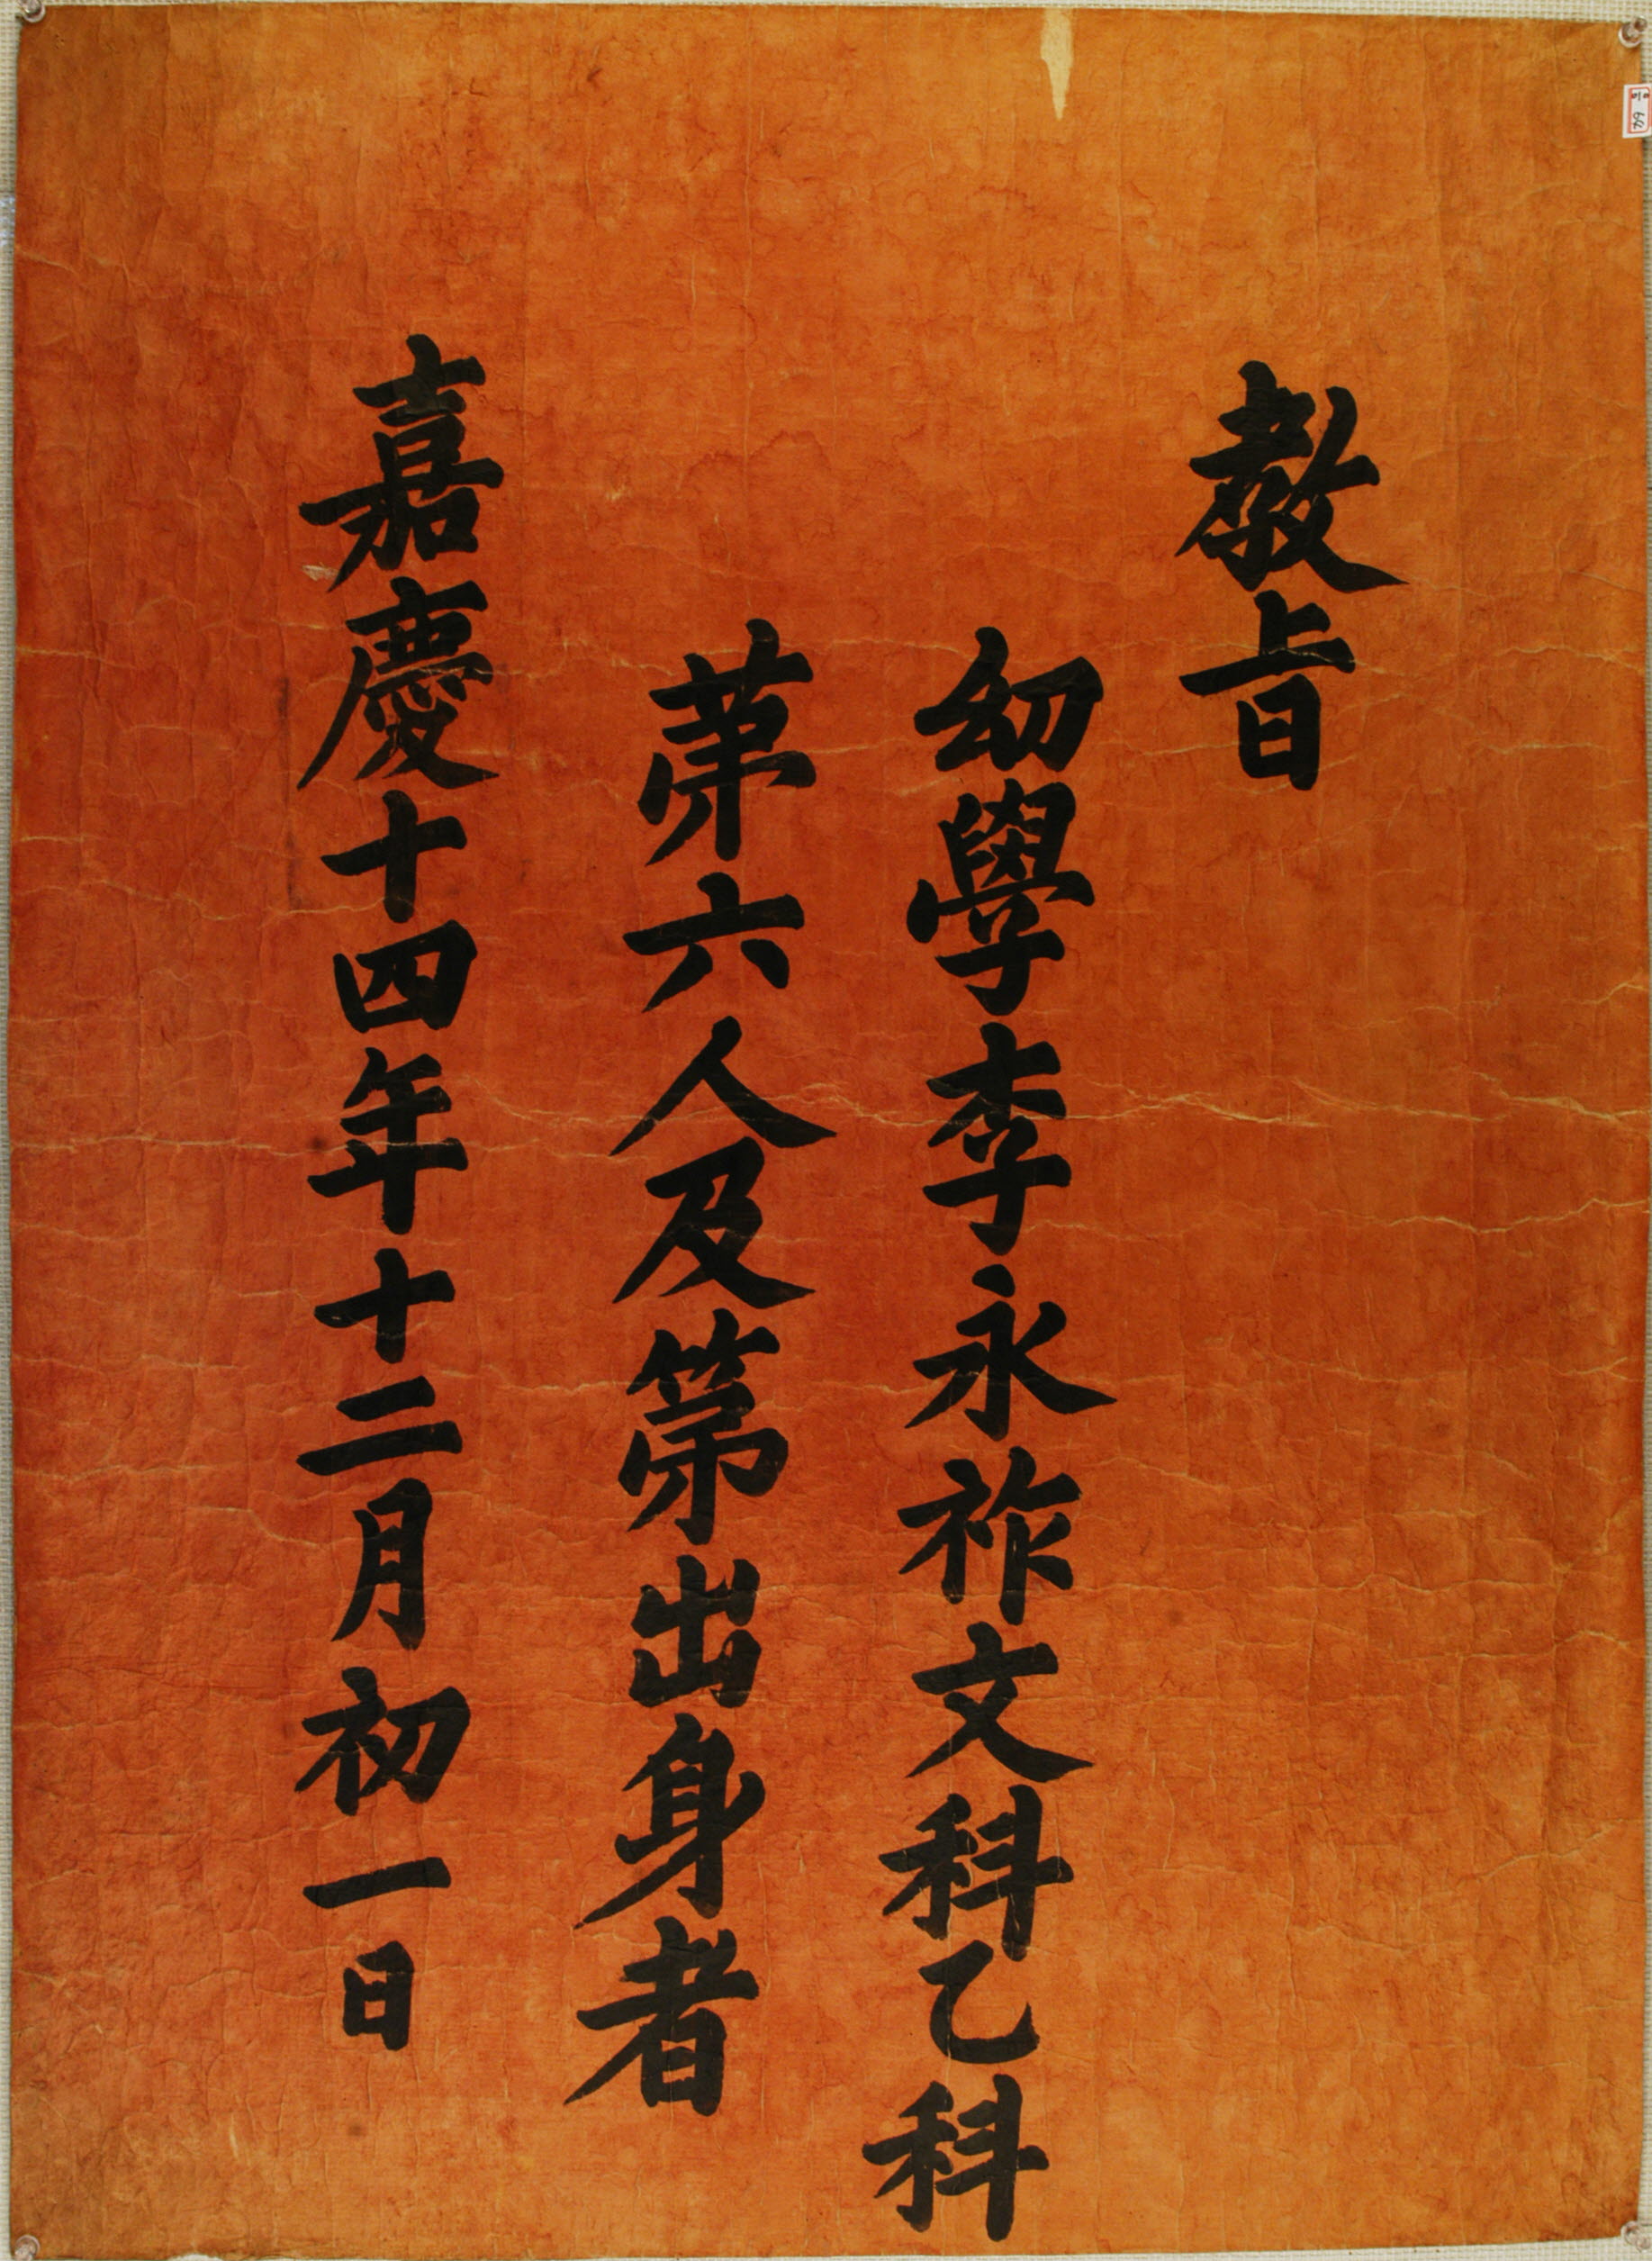 敎旨
幼學李永祚文科乙科
第六人及第出身者
嘉慶十四年十二月初一日